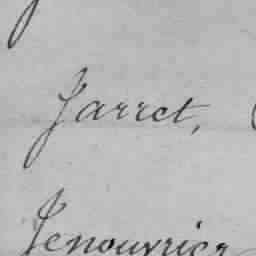 Jarret,
Jenouvrier